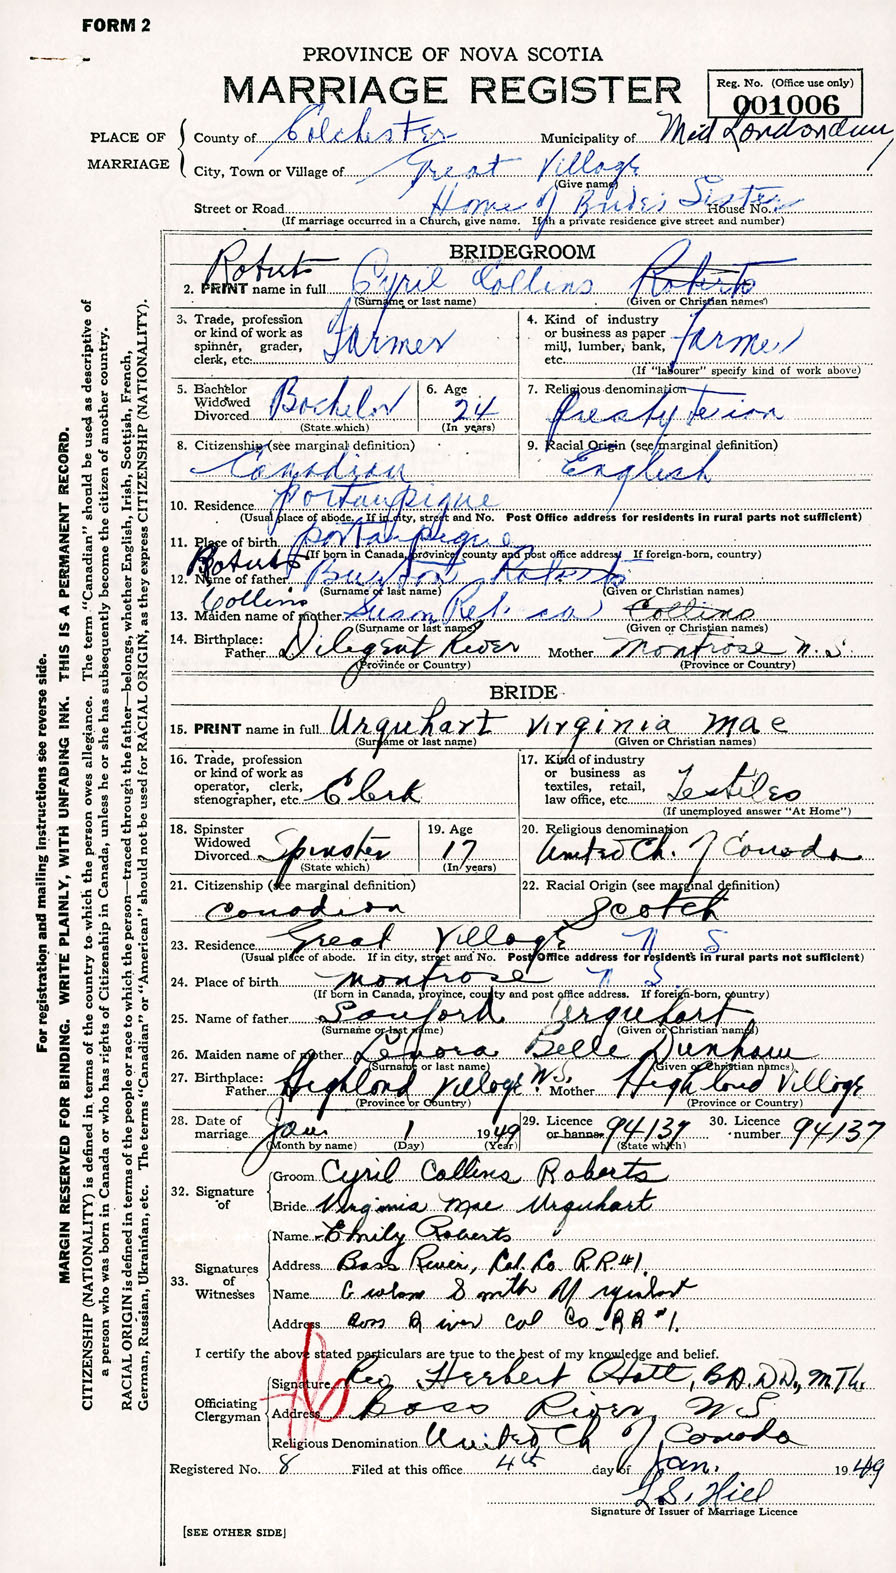 FORM 2
PROVINCE OF NOVA SCOTIA
MARRIAGE REGISTER
Reg. No. (Office use only)
001006
PLACE OF MARRIAGE
County of Colchester Municipality of Mid Londonderry
City, Town or Village of Great Village
(Give name)
Street or Road Home of Bride's Sister House No.
(If marriage occurred in a Church, give name. If in a private residence give street and number)
BRIDEGROOM
Roberts
2. PRINT name in full Cyril Collins Roberts
(Surname or last name) (Given or Christian names)
3. Trade, profession or kind of work as spinner, grader, clerk, etc. Farmer
4. Kind of industry or business as paper mill, lumber, bank, etc. Farmer
(If "labourer" specify kind of work above)
5. Bachelor Widowed Divorced Bachelor
(State which)
6. Age 24
(In years)
7. Religious denomination Presbyterian
8. Citizenship (see marginal definition)
Canadian
9. Racial Origin (see marginal definition)
English
10. Residence Portaupique
(Usual place of abode. If in city, street and No. Post Office address for residents in rural parts not sufficient)
11. Place of birth Portaupique
(If born in Canada, province, county and post office address. If foreign-born, country)
Roberts
12. Name of father Burton Roberts
(Surname or last name) (Given or Christian names)
Collins
13. Maiden name of mother Susan Rebecca Collins
(Surname or last name) (Given or Christian names)
14. Birthplace: Father Diligent River Mother Montrose N.S.
(Province or Country) (Province or Country)
BRIDE
15. PRINT name in full Urquhart Virginia Mae
(Surname or last name) (Given or Christian names)
16. Trade, profession or kind of work as operator, clerk, stenographer, etc. Clerk
17. Kind of industry or business as textiles, retail, law office, etc. Textiles
(If unemployed answer "At Home")
18. Spinster Widowed Divorced Spinster
(State which)
19. Age 17
(In years)
20. Religious denomination
United Ch. of Canada
21. Citizenship (see marginal definition)
Canadian
22. Racial Origin (see marginal definition)
Scotch
23. Residence Great Village N S
(Usual place of abode. If in city, street and No. Post Office address for residents in rural parts not sufficient)
24. Place of birth Montrose N S.
(If born in Canada, province, county and post office address. If foreign-born, country)
25. Name of father Sanford Urquhart
(Surname or last name) (Given or Christian names)
26. Maiden name of mother Lenora Belle Dunham
(Surname or last name) (Given or Christian names)
27. Birthplace: Father Highland Village N.S. Mother Highland Village
(Province or Country) (Province or Country)
28. Date of marriage Jan 1 1949
(Month by name) (Day) (Year)
29. Licence or banns 94137
(State which)
30. Licence number 94137
32. Signature of
Groom Cyril Collins Roberts
Bride Virginia Mae Urquhart
33. Signatures of Witnesses
Name Emily Roberts
Address Bass River, Col. Co. R.R. #1.
Name Smith Urquhart
Address Bass River Col Co. RR #1.
I certify the above stated particulars are true to the best of my knowledge and belief.
Officiating Clergyman
Signature Rev Herbert B.A. D.D., M.Th.
Address Bass River, N S
Religious Denomination United Ch of Canada
Registered No. 8 Filed at this office 4th day of Jan. 1949
L.S. Hill
Signature of Issuer of Marriage Licence
[SEE OTHER SIDE]
For registration and mailing instructions see reverse side.
MARGIN RESERVED FOR BINDING. WRITE PLAINLY, WITH UNFADING INK. THIS IS A PERMANENT RECORD.
CITIZENSHIP (NATIONALITY) is defined in terms of the country to which the person owes allegiance. The term "Canadian" should be used as descriptive of
a person who was born in Canada or who has rights of Citizenship in Canada, unless he or she has subsequently become the citizen of another country.
RACIAL ORIGIN is defined in terms of the people or race to which the person—traced through the father—belongs, whether English, Irish, Scottish, French,
German, Russian, Ukrainian, etc. The terms "Canadian" or "American" should not be used for RACIAL ORIGIN, as they express CITIZENSHIP (NATIONALITY).